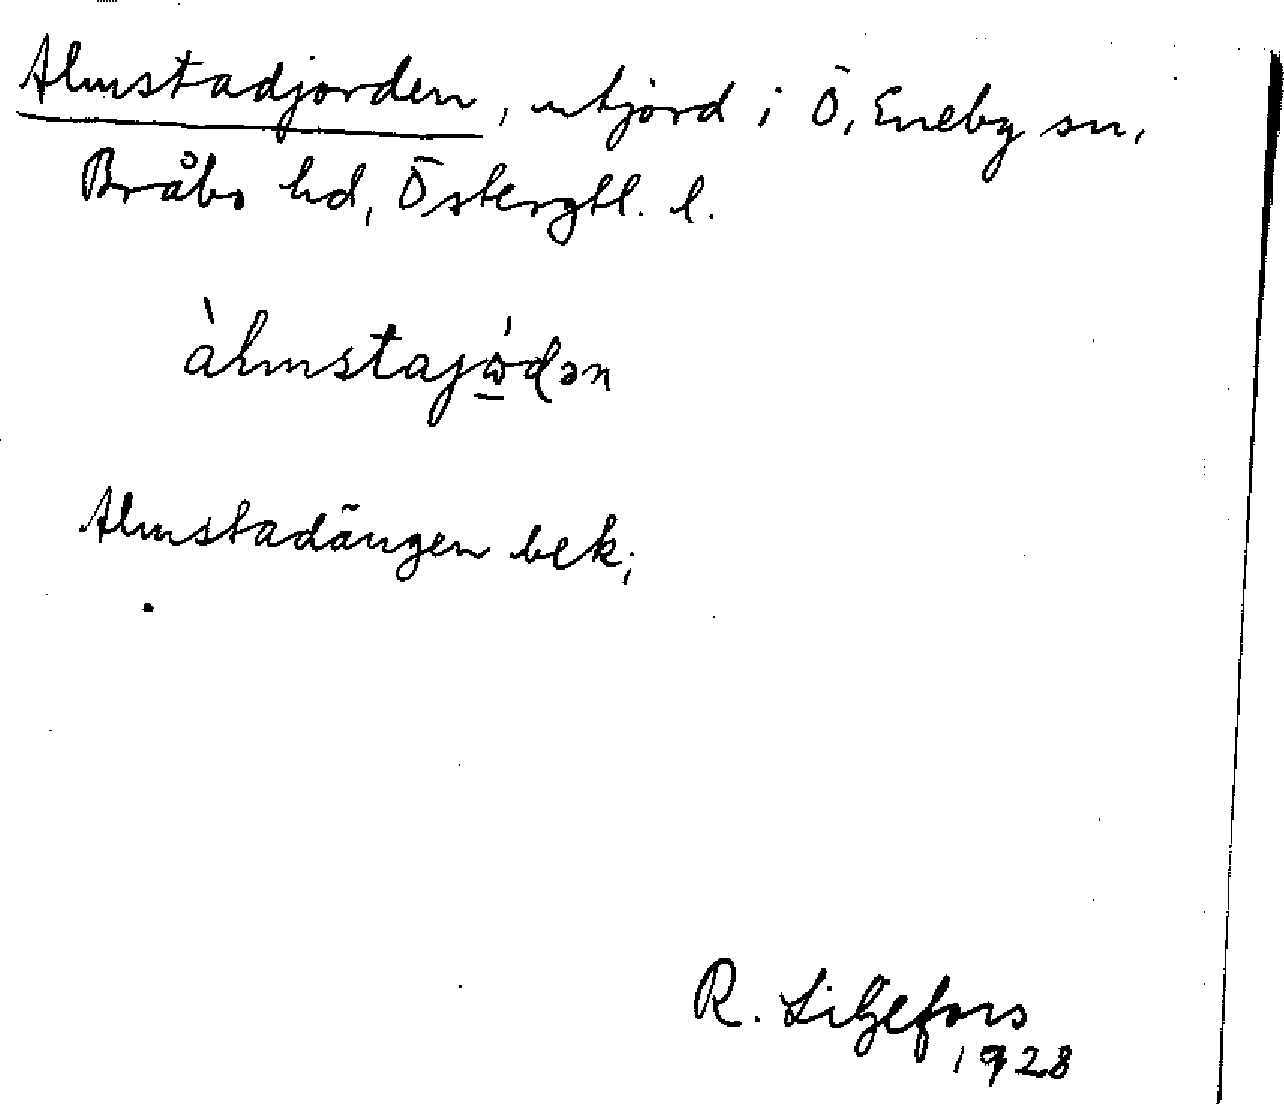 Almstadjorden, utjord i Ö. Eneby sn,
Bråbo hd, Östergtl. l.
àlmstajώ̲ɖən
Almstadängen bek.
R. Liljefors
1928